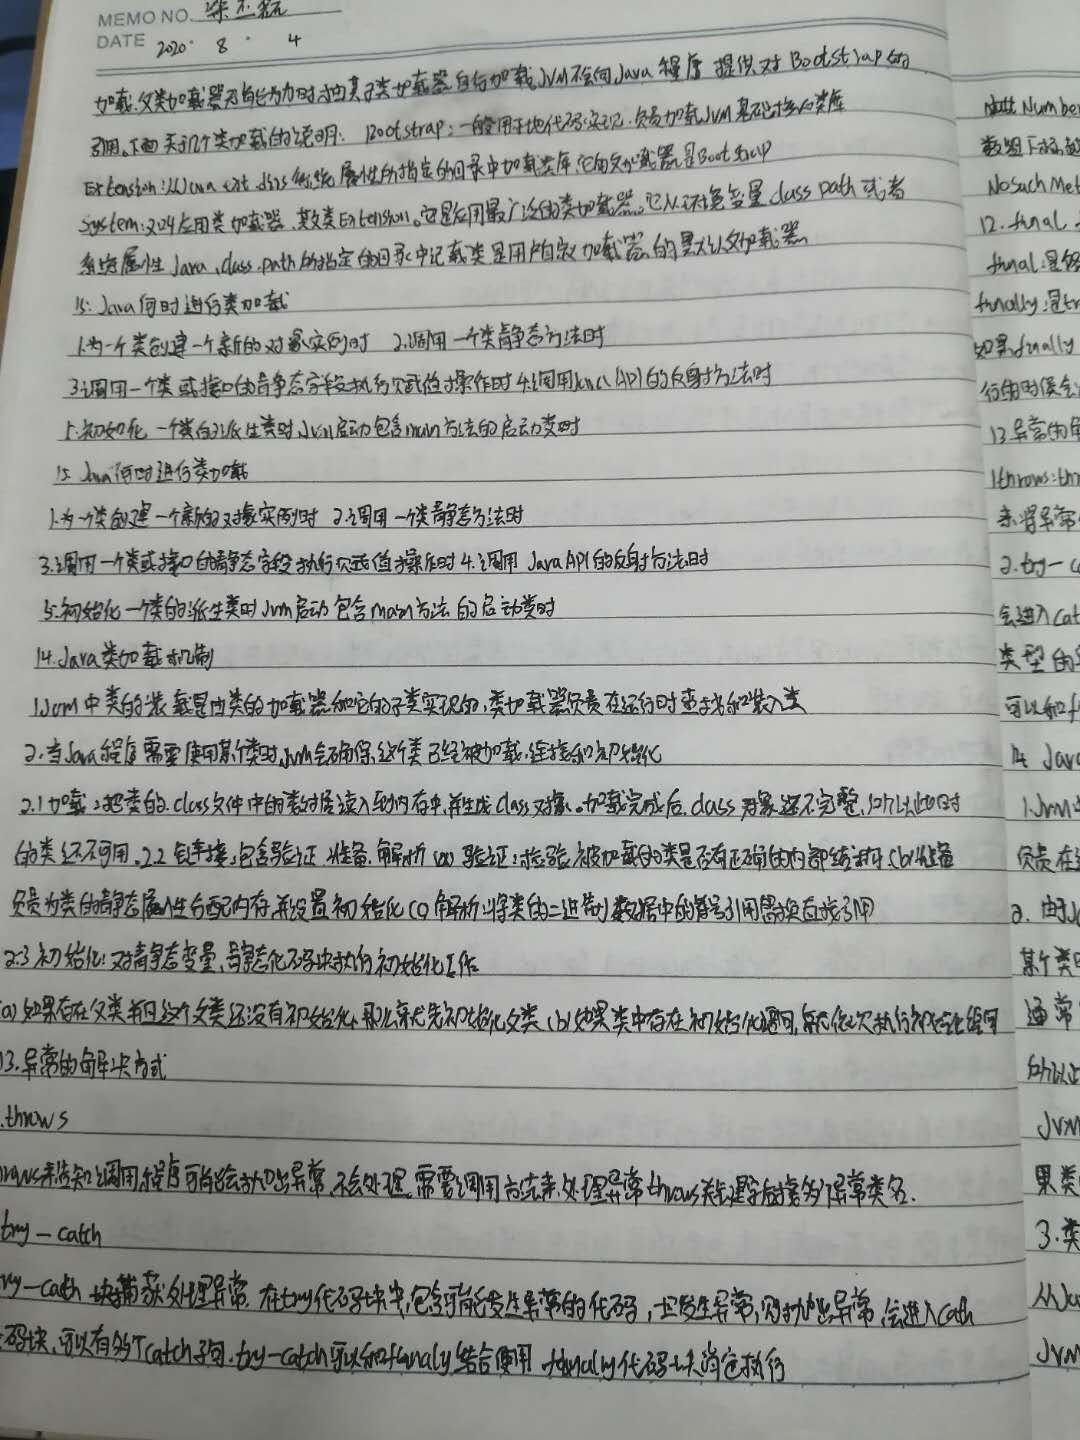 MEMO NO.
DATE 2020 · 8 · 4
加载.父类加载器无能为力时才由其子类加载器自行加载JVM不会向Java程序提供对Bootstrap的
引用。下面关于几个类加载的说明: Bootstrap:一般用本地代码实现.负责加载JVM基础核心类库
Extension:从Java ext.dirs系统属性所指定的目录中加载类库,它的父加载器是Bootstrap
System:又叫应用类加载器.其父类Extension。它是应用最广泛的类加载器。它从环境变量class path或者
系统属性Java.class.path所指定的目录中记载类是用户自定义加载器的默认父加载器
15. Java何时进行类加载
1.为一个类创建一个新的对象实例时 2.调用一个类静态方法时
3.调用一个类或接口的静态字段执行赋值操作时 4.调用Java API的反射方法时
5.初始化一个类的派生类时 JVM启动包含main方法的启动类时
15 Java何时进行类加载
1.为一个类创建一个新的对象实例时 2.调用一个类静态方法时
3.调用一个类或接口的静态字段执行赋值操作时 4.调用Java API的反射方法时
5.初始化一个类的派生类时 Jvm启动包含main方法的启动类时
14.Java类加载机制
1.Jvm中类的装载是由类的加载器和它的子类实现的,类加载器负责在运行时查找和装入类
2.当Java程序需要使用某个类时,Jvm会确保这个类已经被加载.连接和初始化
2.1加载:把类的.class文件中的数据读入到内存中,并生成class对象。加载完成后,class对象还不完整,所以此时
的类还不可用。2.2 链接:包含验证.准备.解析 (a)验证:检验被加载的类是否有正确的内部结构 (b)准备
负责为类的静态属性分配内存,并设置初始化 (c)解析:将类的二进制数据中的符号引用替换直接引用
2.3初始化:对静态变量,静态代码块执行初始化工作
(a)如果存在父类并且这个父类还没有初始化,那么就先初始化父类 (b)如果类中存在初始化语句,就依次执行初始化语句
13.异常的解决方式
.throws
throws来告知调用程序可能会抛出异常,不会处理,需要调用方法来处理异常throws关键字后接多个异常类名.
try-catch
try-catch块捕获处理异常.在try代码块中,包含可能发生异常的代码,一旦发生异常,则抛出异常,会进入cath
码块,可以有多个catch子句.try-catch可以和finaly结合使用 finally代码块肯定执行
数组下标越
NoSuch Met
12. final
final:是修
finally:是tr
如果finally
行的时候会
13异常的解
1throws:thr
来将异常
2.try-c
会进入cat
类型的异
可以和f
14 Java
1.Jvm中
负责在运
2. 由于J
某个类时
通常
所以此
JVM
果类
3.类
从Jav
JVM